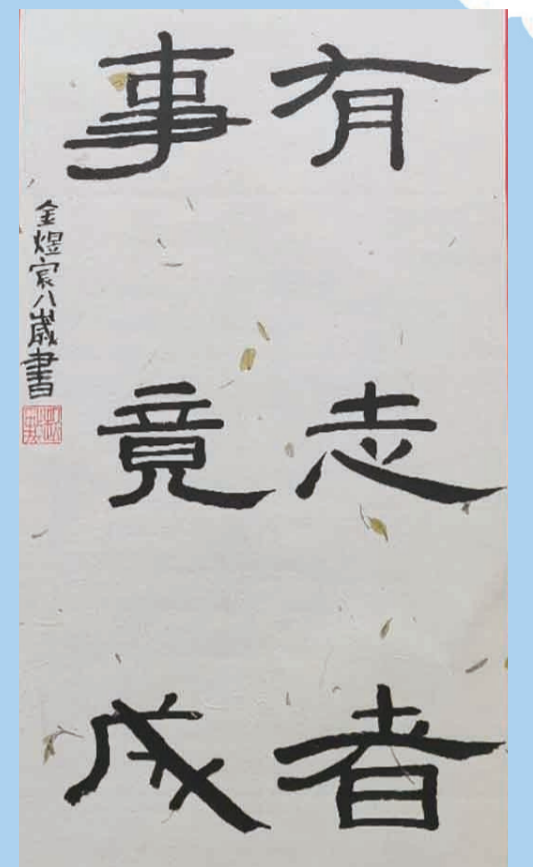 有志者
事竟成
金煜宸八歲書